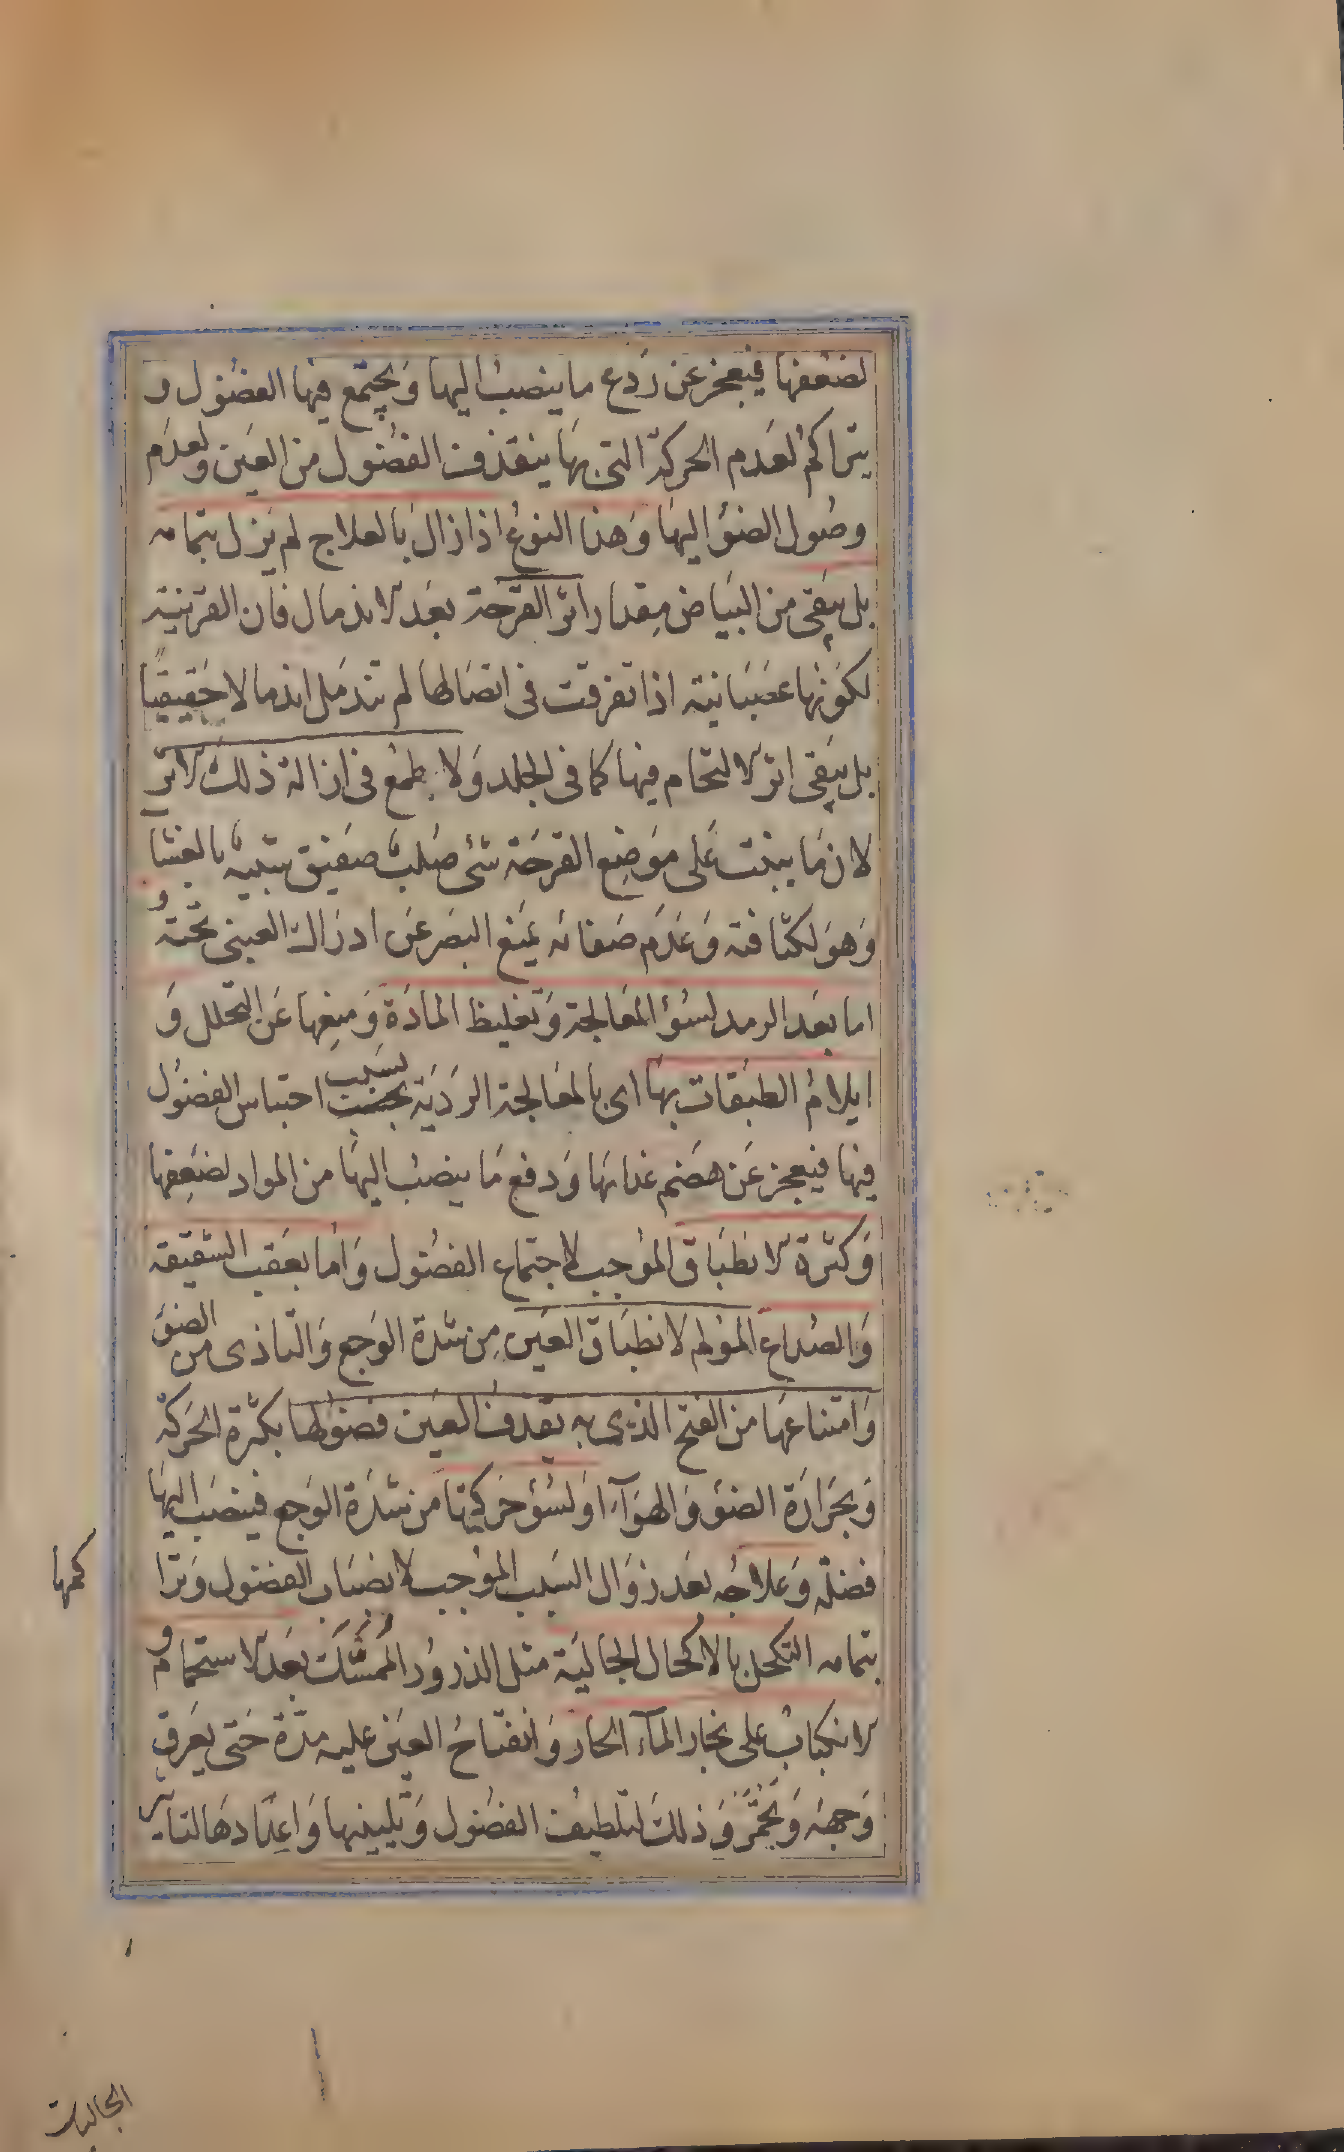 لضعفها فيعجز عن ردع ما ينصب اليها و يجتمع فيها الفضول و
يتراكم لعدم الحركة التى بها ينقذف الفضول من العين ولعدم
وصول الضوُ اليها وَهذا النوع اذا زال بالعلاج لم يزل بتمامه
بل يبقى من البياض مقدار اثر القرحة بعد الاندمال فان القرنية
لكونها عصبانية اذا تفرقت فى اتصالها لم تندمل اندمالا حقيقيا
بل يبقى اثر الالتحام فيها كما فى الجلد وَلا يطمع فى ازالة ذلك الاثر
لان ما ينبت على موضع القرحة شئ صلب صفيق شبيه بالغشا
وَهو لكثافته وَعدم صفائه يمنع البصر عن ادراك العينى تحته و
اما بعد الرمد لسوُ المعالجة وَتغليظ المادة وَمنعها عن التحلل وَ
ايلام الطبقات بها اى بالمعالجة الردية بسبب احتباس الفضول
فيها فيعجز عن هضم غذائها وَدفع ما ينصب اليها من المواد لضعفها
وَكثرة الانطباق الموجب لاجتماع الفضول وَاما بعقب الشقيقة
وَالصداع المولم لانطباق العين من شدة الوجع وَالتاذى من الضوُ
وَامتناعها من الفتح الذى به يقذف العين فضولها بكثرة الحركة
وَبحرارة الضوُ وَالهوآء اولسوُ حركتها من شدة الوجع فينصب اليها
فضلة وَعلاجه بعد زوال السبب الموجب لانصباب الفضول وَترا
كمها
بتمامه التكحل بالاكحال الجالية مثل الذرور الممسّك بعد الاستحمام و
الانكباب على بخار المآء الحار وَانفتاح العين عليه مدة حتى يعرق
وَجهه وَيحمّر وَذلك لتلطيف الفضول وَتليينها وَاعدادها لتاثير
الجاليات